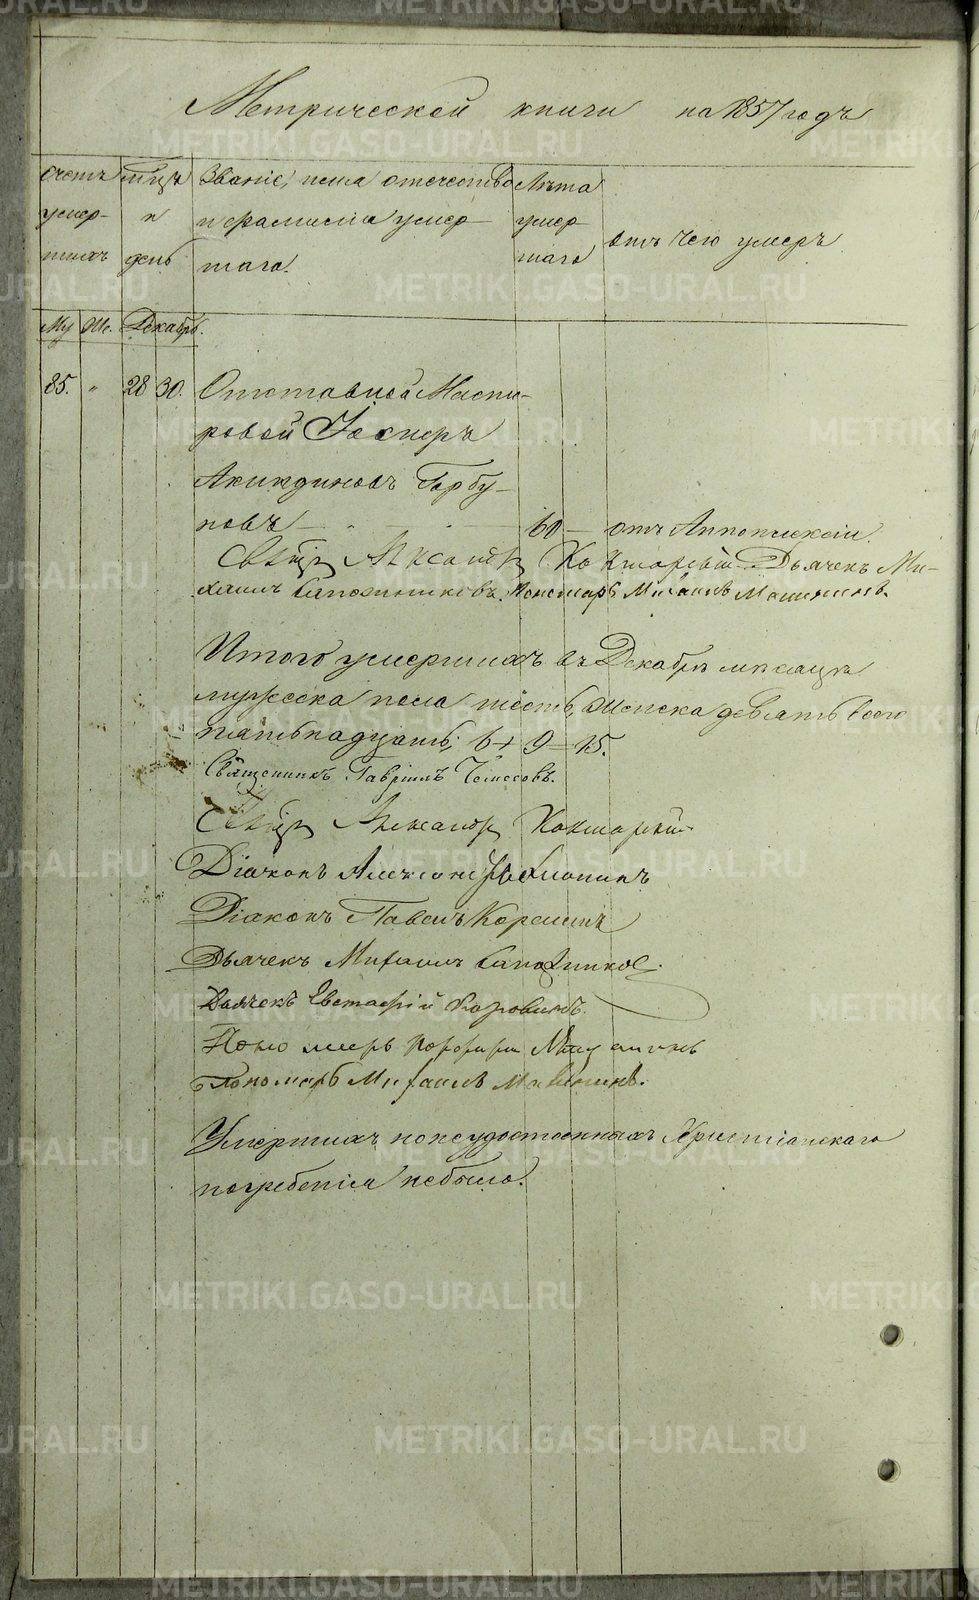 Метрической книги на 1857 годъ
Счетъ умер-шихъ
Мсцъ и день
Званіе, имя отечество и фамилія умер-шаго.
Лѣта умер-шаго
отъ чего умеръ
Му Же. Декабрь.
85. " 28 30. Отставной Масте-
ровой
Акиндиновъ Горбу-
новъ — 60 — отъ Аппоплексіи.
Свящ Александр Кокшарскій Дьячекъ Ми-
хаилъ Сапожниковъ. Пономарь Михаилъ
Итого умершихъ въ Декабрѣ мѣсяцѣ
мужеска пола шесть, женска девять всего
пятьнадцать; 6 + 9 = 15.
Священникъ Гавріилъ
Свящ Александр Кокшарскій
Діаконъ Александръ
Діаконъ Павелъ
Дьячекъ Михаилъ Сапожников.
Дьячекъ Евстафій Коровинъ.
Пономарь Порфирій
Пономарь Михаилъ
Умершихъ и неудостоенныхъ Христіанскаго
погребенія небыло.
METRIKI.GASO-URAL.RU